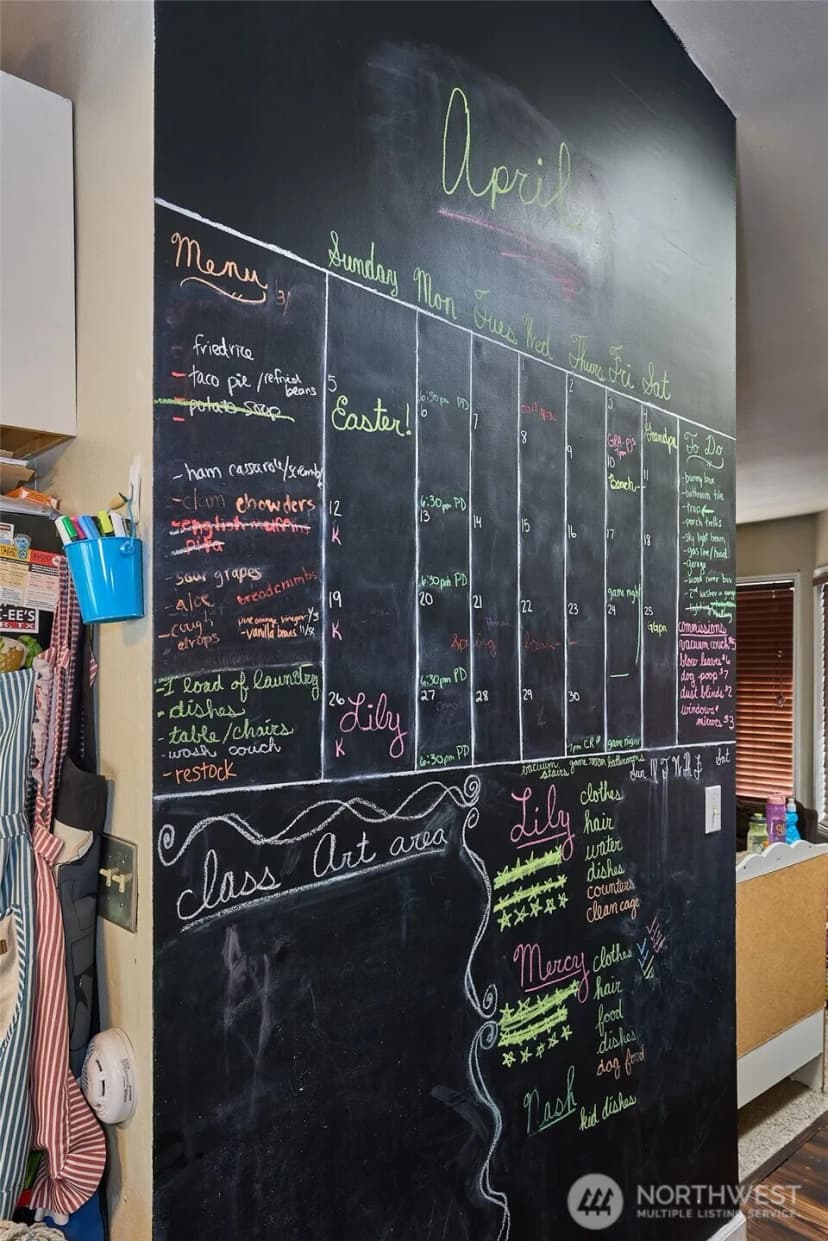 April
Sunday Mon Tues Wed Thurs Fri Sat
Menu
3/
- friedrice
- taco pie / refried beans
- potato soup
- ham casserole/
- clam chowders
- english muffins
- pita
- sour grapes
- aloe breadcrumbs
- cough drops
- vanilla beans
- 1 load of laundry
- dishes
- table/chairs
- wash couch
- restock
1 2 3 4
5 Easter! 6:30pm PD 6 7 8 9 10 11
Grandpa
7pm
12 K 6:30pm PD 13 14 15 16 17 18
19 K 6:30pm PD 20 21 22 23 game night 24 25
Spring break
26 K Lily 6:30pm PD 27 28 29 30
6:30pm PD 7pm CR game night
To Do
- bunny box
- bathroom tile
- trap
- porch trellis
- sky light beam
- gas line/hood
- garage
- wood cover box
commissions
vacuum couch $5
blow leaves $6
dog poop $7
dust blinds $2
windows &
mirrors $3
vacuum stairs game room bathrooms
Sun M T W Th F Sat
class Art area
Lily
clothes
hair
water
dishes
counters
clean cage
Mercy
clothes
hair
food
dishes
dog food
Nash
kid dishes
LEE'S
NORTHWEST
MULTIPLE LISTING SERVICE